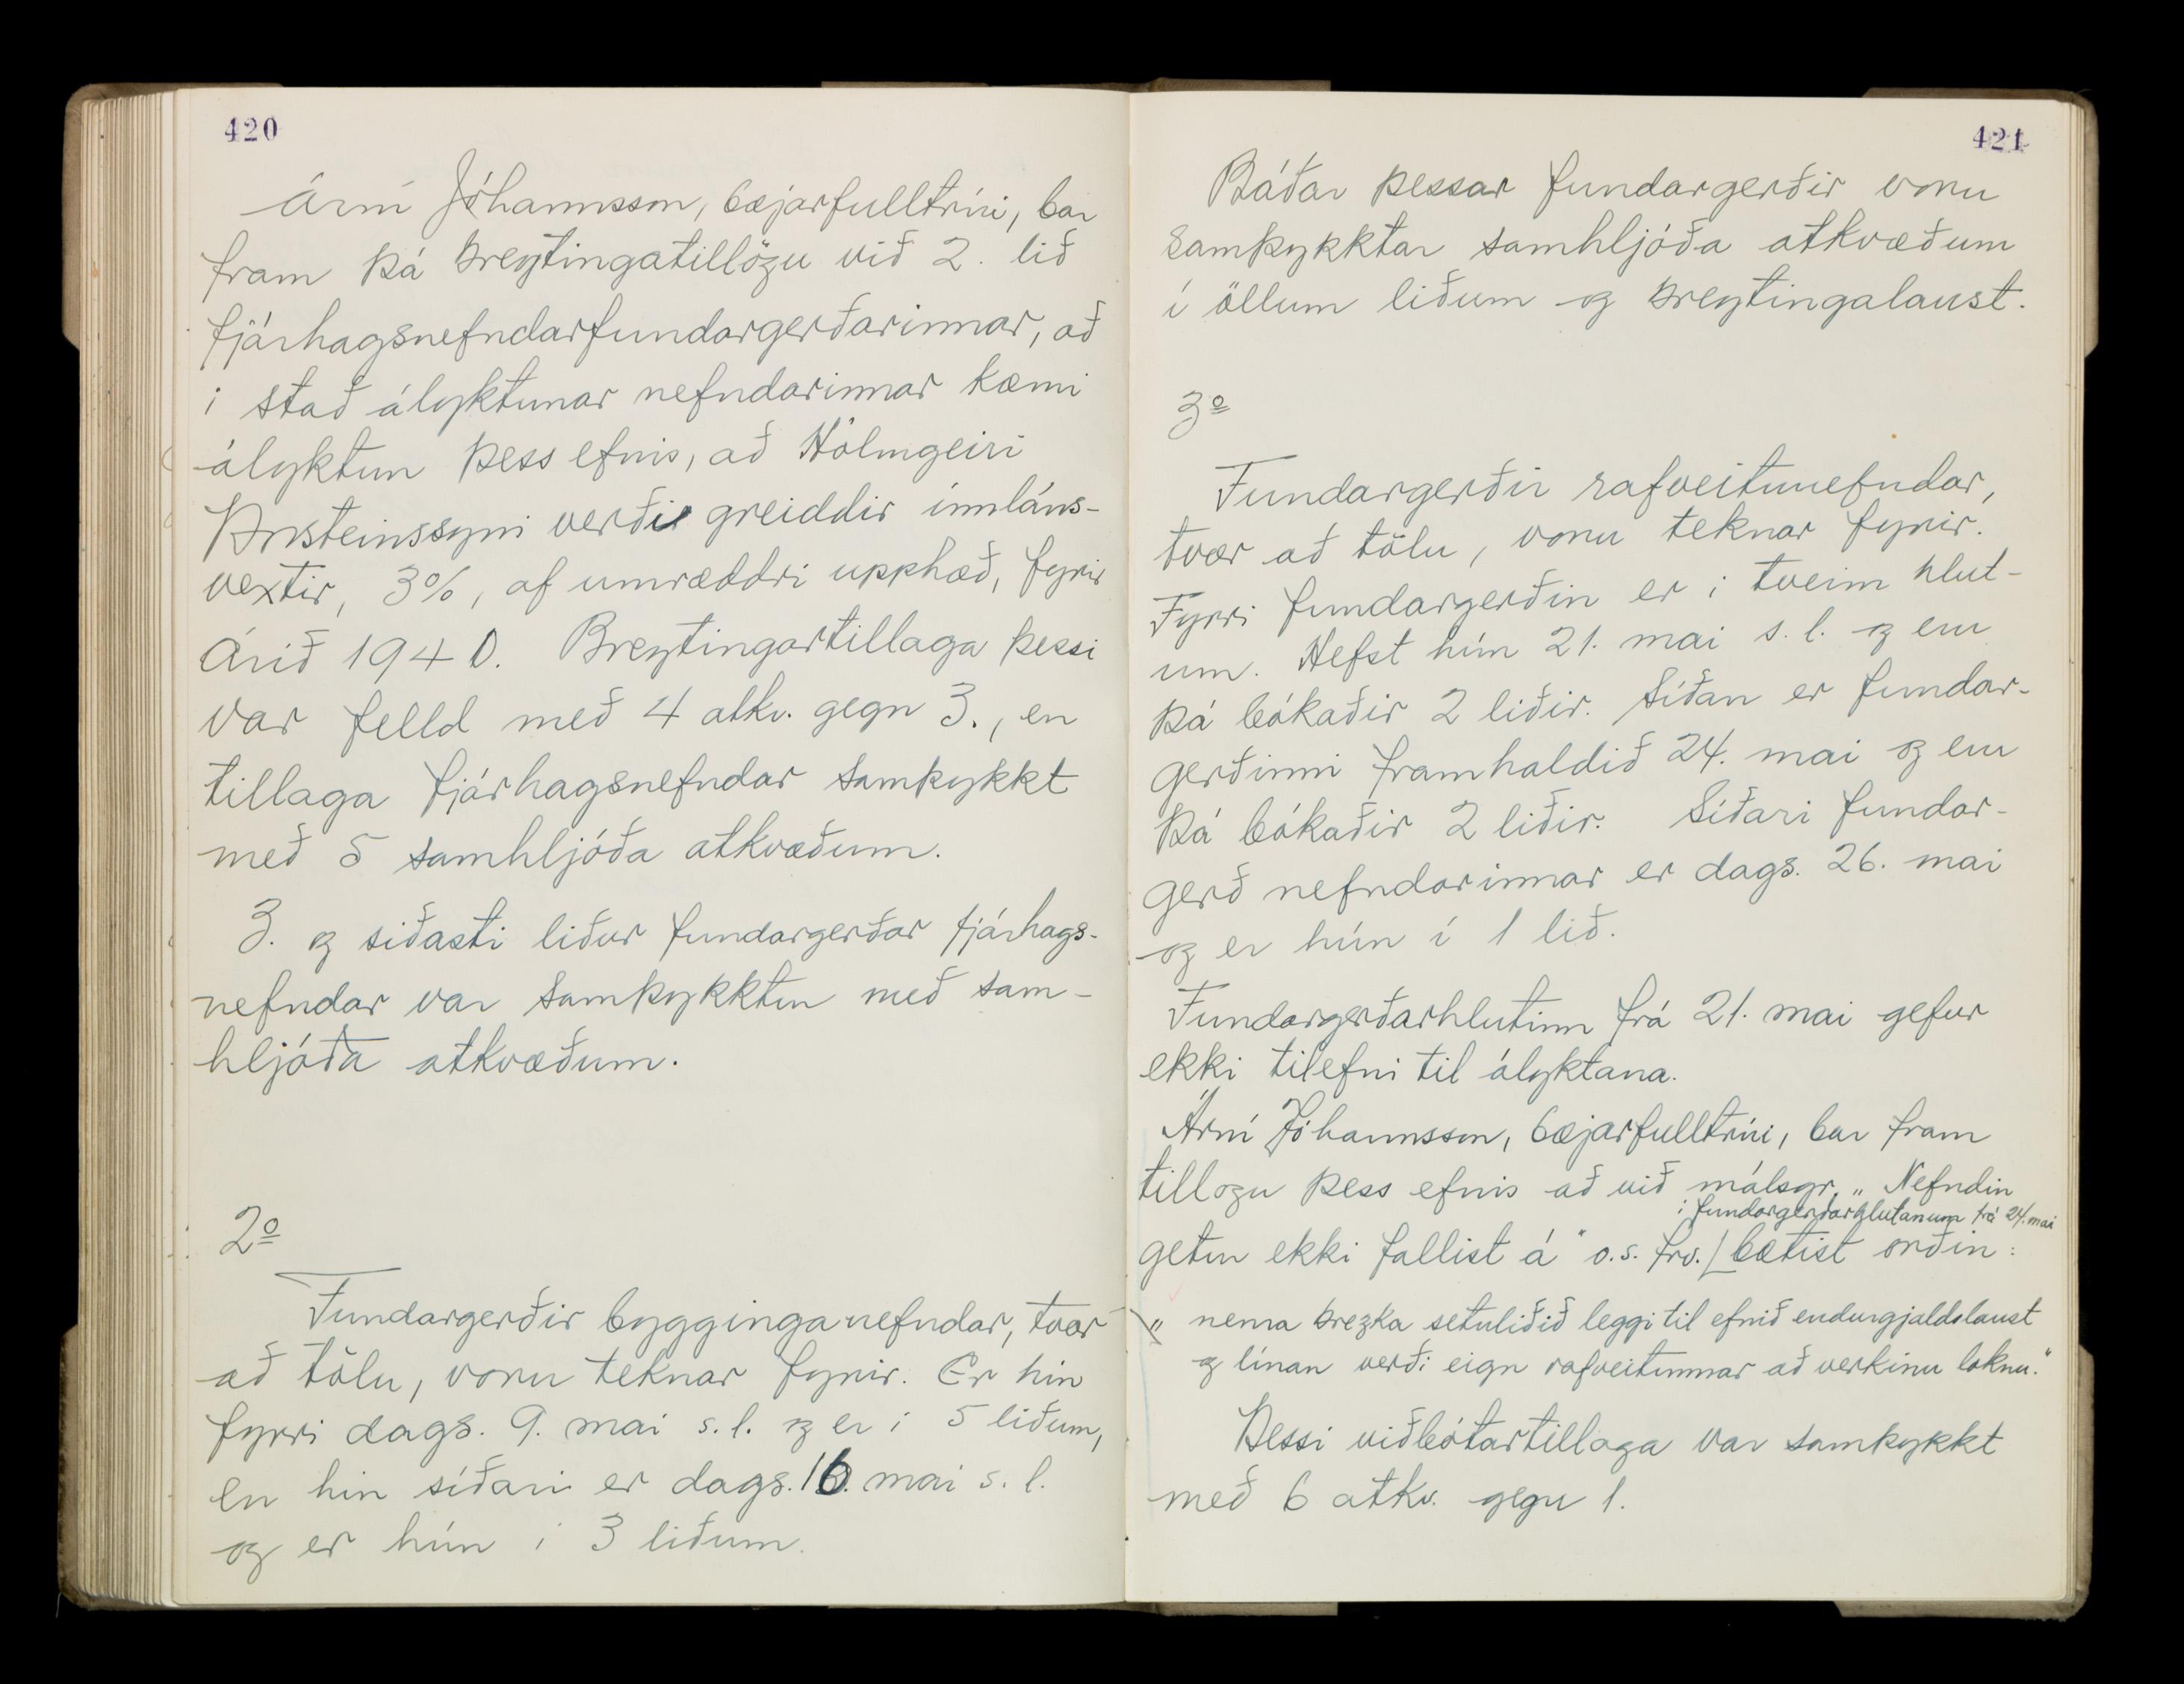 420
Árni Jóhannsson, bæjarfulltrúi, bar
fram þá breytingatillögu við 2. lið
fjárhagsnefndarfundargerðarinnar, að
i stað ályktunar nefndarinnar kæmi
ályktun þess efnis, að Hólmgeiri
Þorsteinssyni verði greiddir innláns-
vextir, 3%, af umræddri upphæð, fyrir
árið 1940. Breytingartillaga þessi
var felld með 4 atkv. gegn 3., en
tillaga fjárhagsnefndar samþykkt
með 5 samhljóða atkvæðum.
3. og síðasti liður fundargerðar fjárhags-
nefndar var samþykktur með sam-
hljóða atkvæðum.
2º
Fundargerðir bygginganefndar, tvær
að tölu, voru teknar fyrir. Er hin
fyrri dags. 9. mai s.l. og er i 5 liðum,
en hin síðari er dags. 16. mai s.l.
og er hún i 3 liðum.
421
Báðar þessar fundargerðir voru
samþykktar samhljóða atkvæðum
í öllum liðum og breytingalaust.
3º
Fundargerðir rafveitunefndar,
tvær að tölu, voru teknar fyrir.
Fyrri fundargerðin er i tveim hlut-
um. Hefst hún 21. mai s.l. og eru
þá bókaðir 2 liðir. Síðan er fundar-
gerðinni framhaldið 24. mai og eru
þá bókaðir 2 liðir. Síðari fundar-
gerð nefndarinnar er dags. 26. mai
og er hún í 1 lið.
Fundargerðarhlutinn frá 21. mai gefur
ekki tilefni til ályktana.
Árni Jóhannsson, bæjarfulltrúi, bar fram
tillogu þess efnis að við málsgr. „Nefndin
i fundargerðarhlutanum frá 24. mai
getur ekki fallist á" o.s.frv. bætist orðin:
„nema brezka setuliðið leggi til efnið endurgjaldslaust
og línan verði eign rafveitunnar að verkinu loknu."
Þessi viðbótartillaga var samþykkt
með 6 atkv. gegn 1.